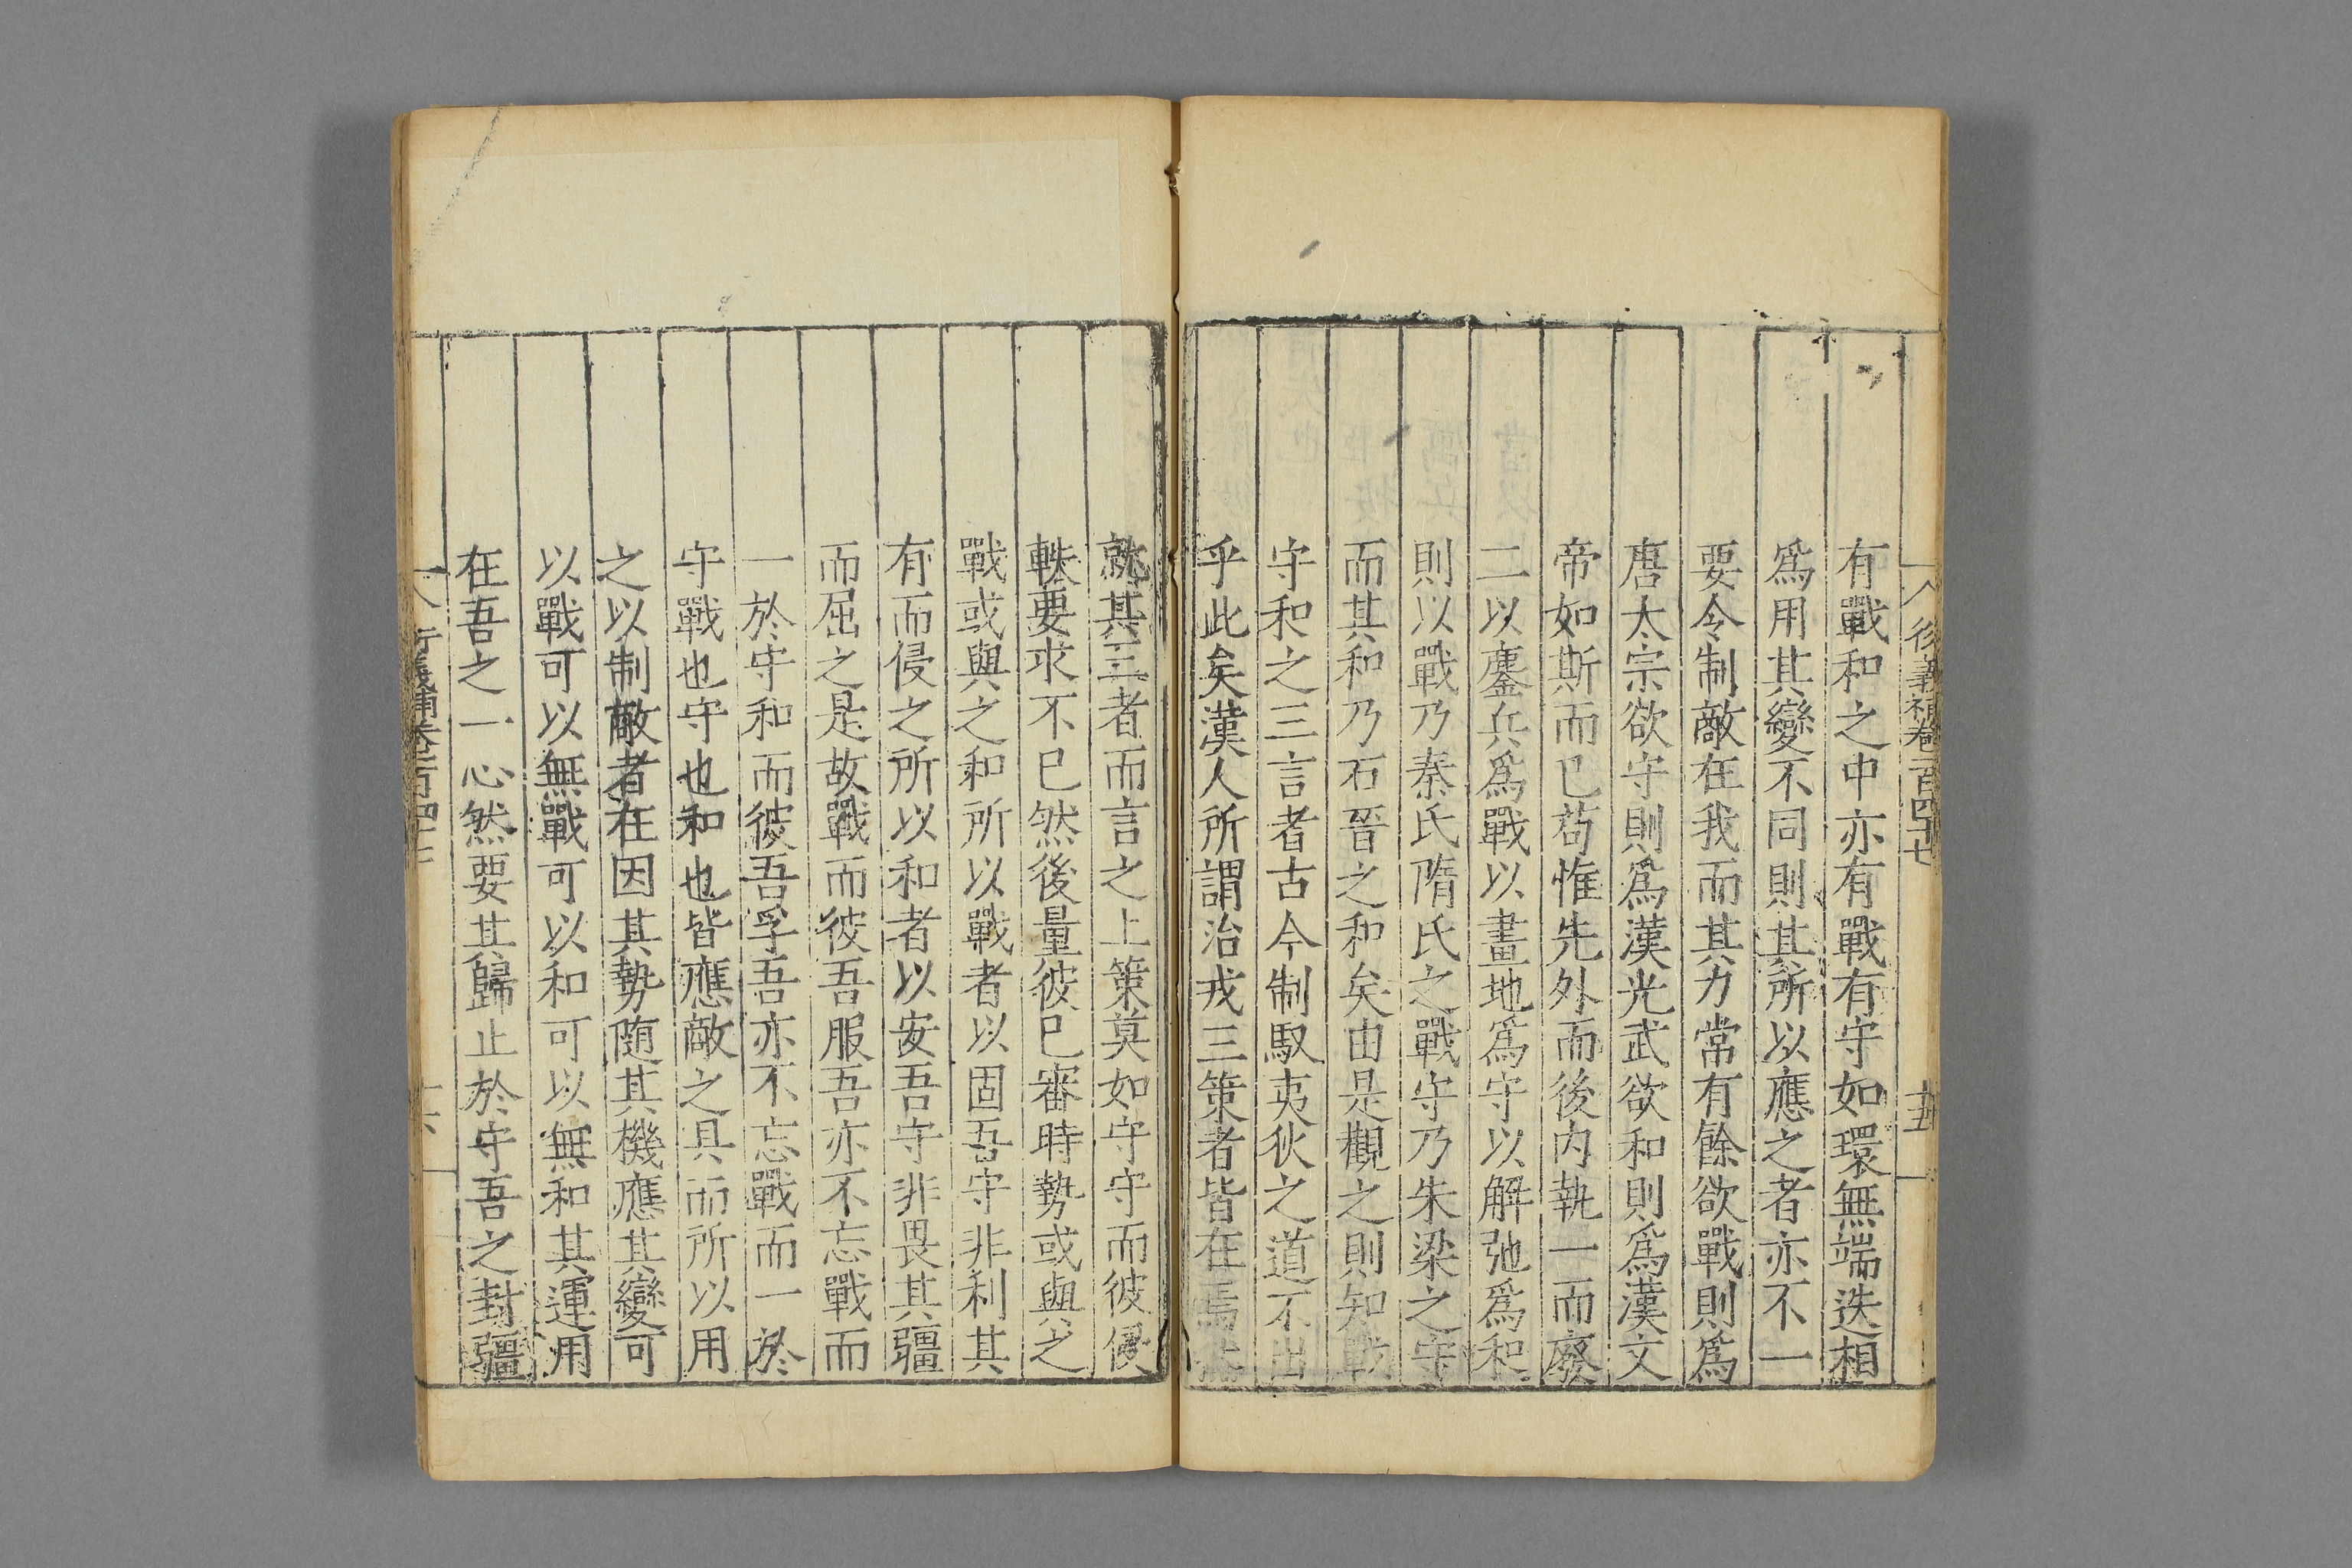 衍義補卷一百四十七
十五
有戰和之中亦有戰有守如環無端迭相
爲用其變不同則其所以應之者亦不一
要令制敵在我而其力常有餘欲戰則爲
唐太宗欲守則爲漢光武欲和則爲漢文
帝如斯而已苟惟先外而後内執一而廢
二以鏖兵爲戰以畫地爲守以解弛爲和
則以戰乃秦氏隋氏之戰守乃朱梁之守
而其和乃石晉之和矣由是觀之則知戰
守和之三言者古今制馭夷狄之道不出
乎此矣漢人所謂治戎三策者皆在焉
就其三者而言之上策莫如守守而彼侵
軼要求不已然後量彼已審時勢或與之
戰或與之和所以戰者以固吾守非利其
有而侵之所以和者以安吾守非畏其疆
而屈之是故戰而彼吾服吾亦不忘戰而
一於守和而彼吾孚吾亦不忘戰而一於
守戰也守也和也皆應敵之具而所以用
之以制敵者在因其勢随其機應其變可
以戰可以無戰可以和可以無和其運用
在吾之一心然要其歸止於守吾之封疆
衍義補卷一百四十七
十六